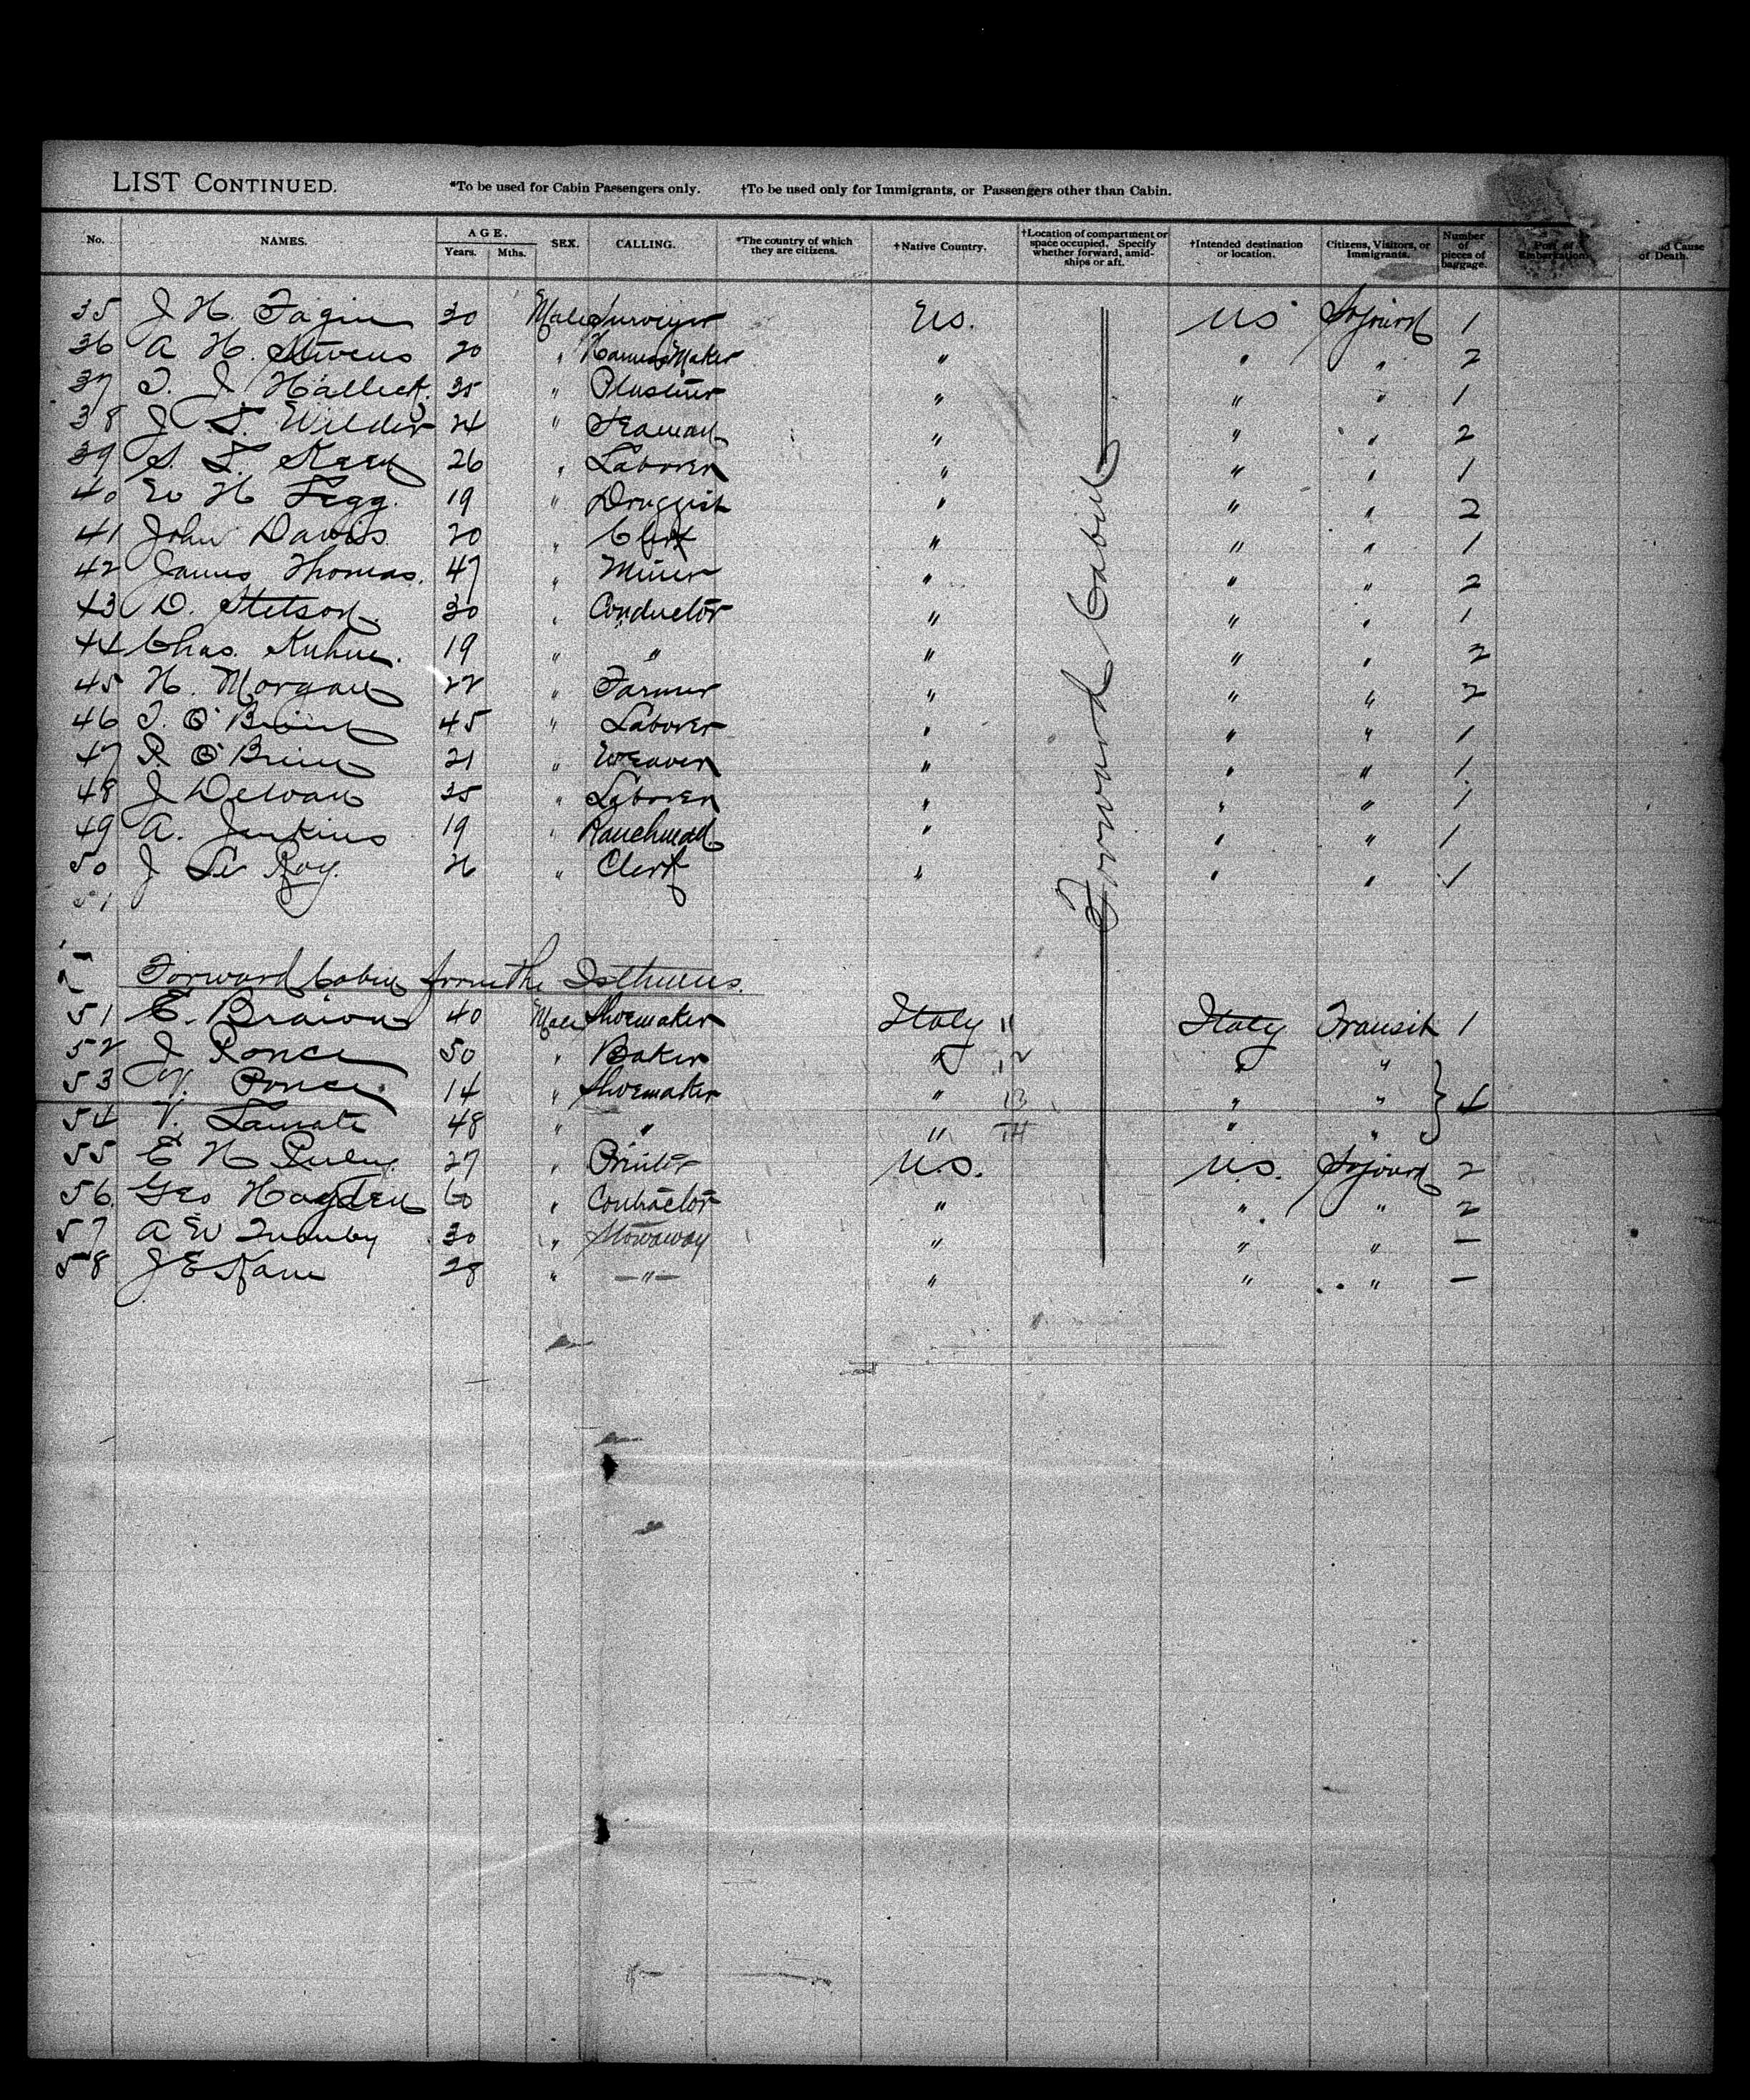 LIST CONTINUED. *To be used for Cabin Passengers only. †To be used only for Immigrants, or Passengers other than Cabin.
No. NAMES. AGE. Years. Mths. SEX. CALLING. *The country of which they are citizens. †Native Country. †Location of compartment or space occupied. Specify whether forward, amidships or aft. †Intended destination or location. Citizens, Visitors, or Immigrants. Number of pieces of baggage. Port of Embarkation d Cause of Death.
35 J H. Fagin 30 Male Surveyor U.S. U S Sojourd 1
36 A H. Stivens 20 " Harness Maker " " " 2
37 T. J. Hallect. 35 " " " " 1
38 J. S. Wilder 24 " Seaman " " " 2
39 S. F. 26 " Laborer " " " 1
40 W H Legg. 19 " Druggist " " " 2
41 John Davis 20 " Clerk " " " 1
42 James Thomas. 47 " Miner " " " 2
43 D. Stetson. 30 " Conductor " " " 1
44 Chas. Kuhne. 19 " " " " " 2
45 H. Morgan 22 " Farmer " " " 2
46 T. O'Brien 45 " Laborer " " " 1
47 P. O'Brien 21 " Weaver " " " 1
48 J 35 " Laborer " " " 1
49 A. Jenkins 19 " Ranchman " " " 1
50 J Le Roy. 26 " Clerk " " " 1
51
Forward Cabin
Forward Cabin from the Isthmus.
51 E. 40 Male Shoemaker Italy 11 Italy Transit 1
52 J Ponce 50 " Baker " 12 " "
53 V. Ponce. 14 " Shoemaker " 13 " " } 4
54 V. 48 " " " 14 " "
55 E H 27 " Printer U.S. U.S. Sojourd 2
56. Geo Hayden 60 " Contractor " " " 2
57 A W 30 " Stowaway " " " —
58 J E Kane 28 " —"— " " " —